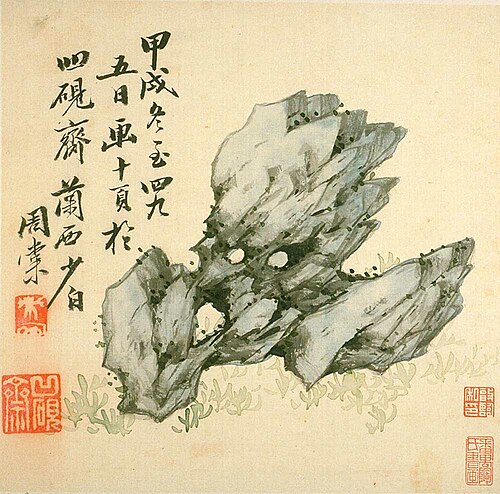 甲戌冬至四九
五日画十頁於
四硯齋蘭西少白
周棠